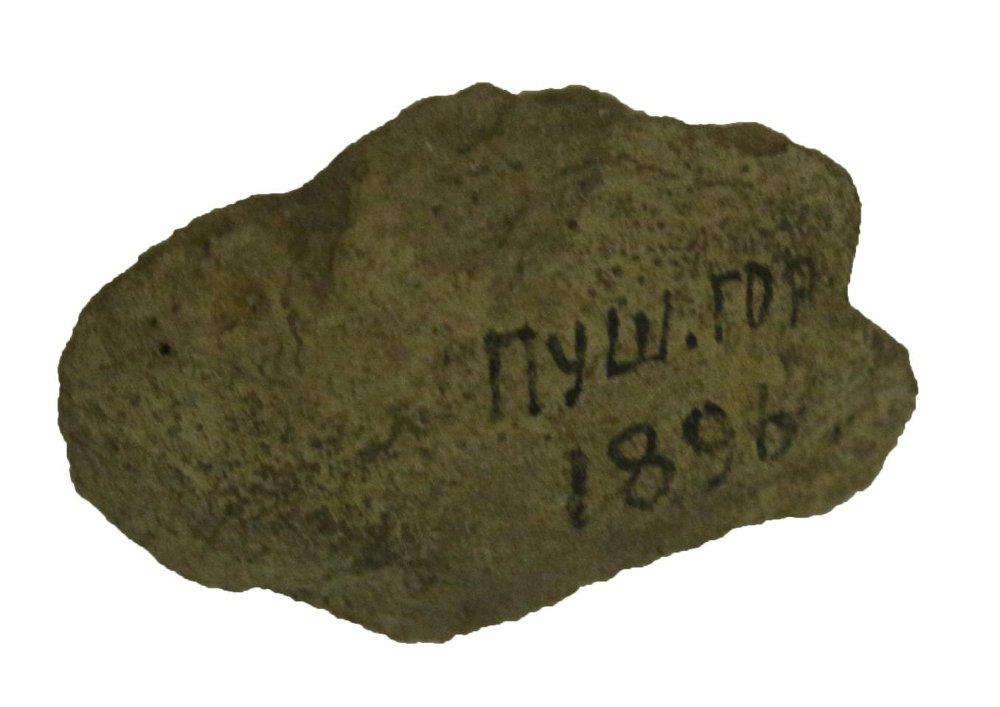 ПУШ.ГОР
1896